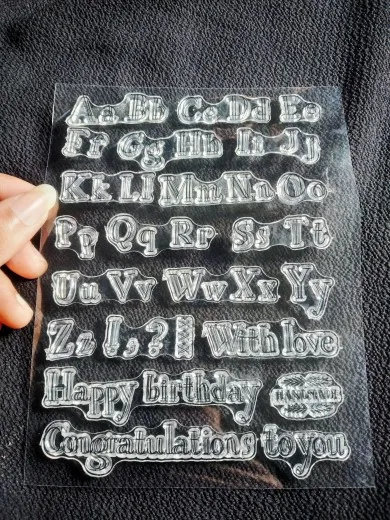 Aa Bb Cc Dd Ee
Ff Gg Hh Ii Jj
Kk Ll Mm Nn Oo
Pp Qq Rr Ss Tt
Uu Vv Ww Xx Yy
Zz !,? With love
Happy birthday HANDMADE
Congratulations to you